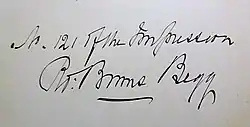 No. 121 of the Impression
Ro: Burns Begg